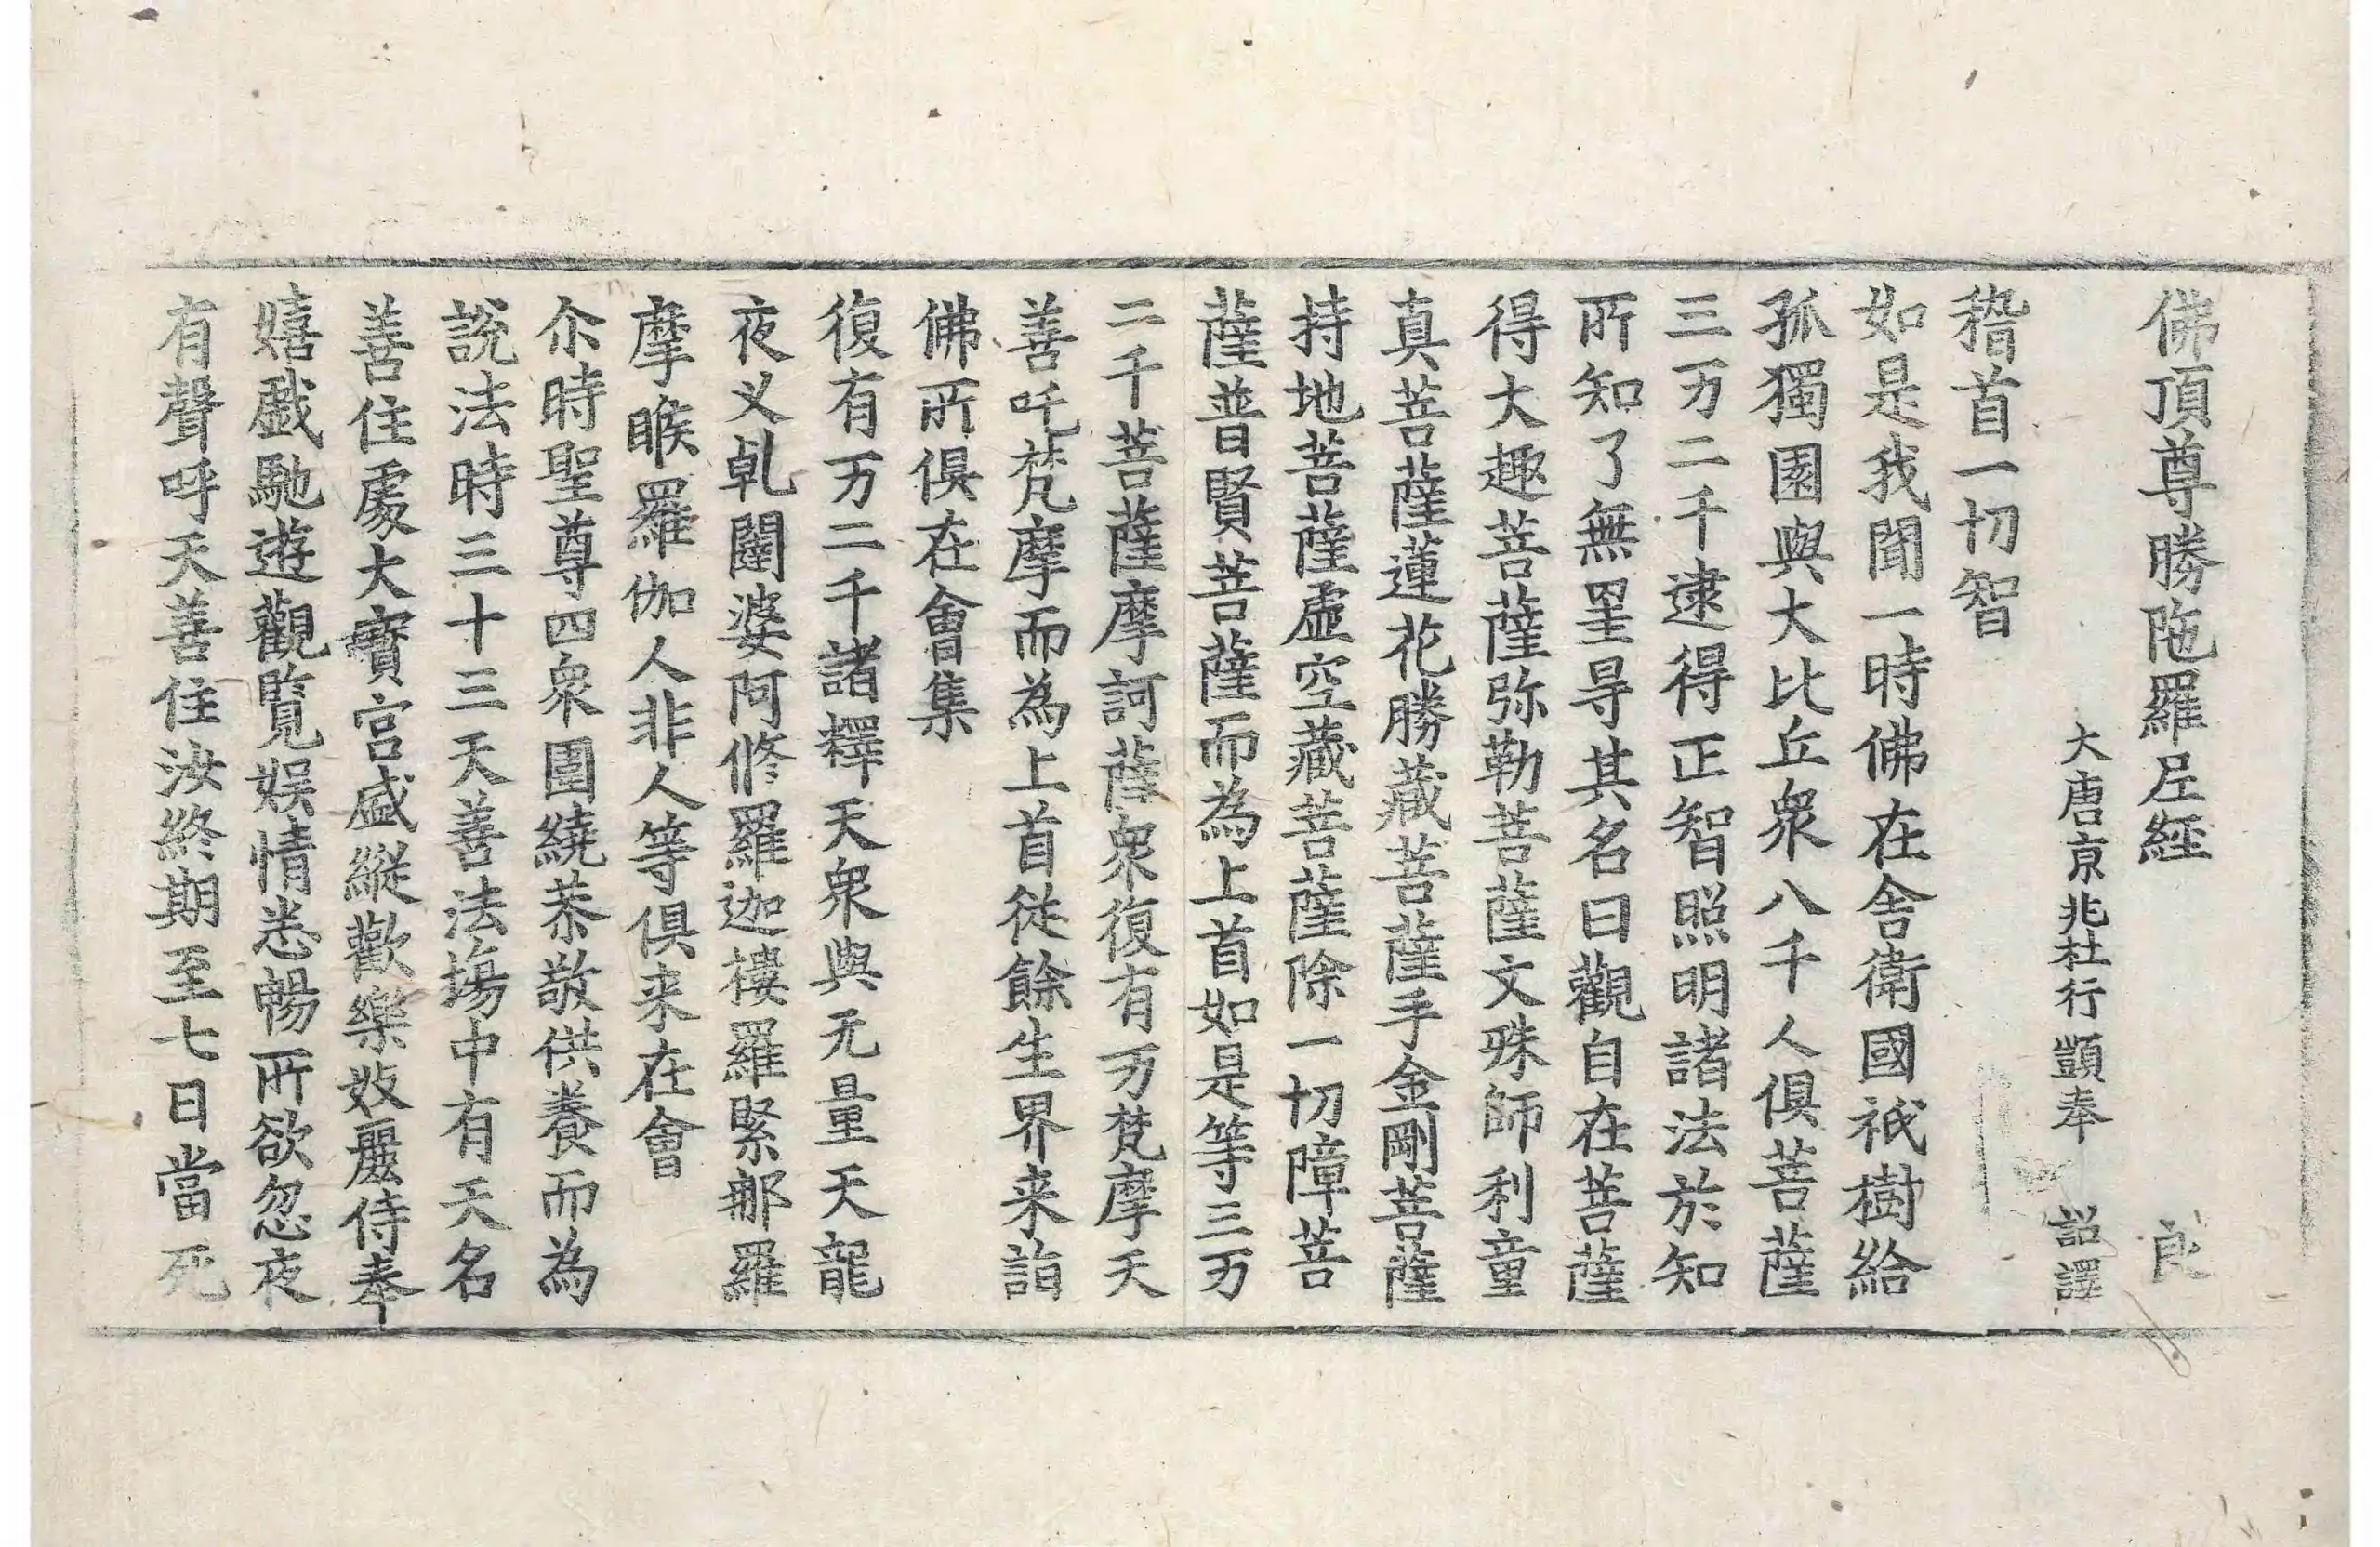 佛頂尊勝陁羅尼經 良
大唐京兆杜行顗奉 詔譯
稽首一切智
如是我聞一時佛在舎衛國祇樹給
孤獨園與大比丘衆八千人俱菩薩
三万二千逮得正智照明諸法於知
所知了無罣㝵其名曰觀自在菩薩
得大趣菩薩弥勒菩薩文殊師利童
真菩薩蓮花勝蔵菩薩手金剛菩薩
持地菩薩虛空蔵菩薩除一切障菩
薩普賢菩薩而為上首如是等三万
二千菩薩摩訶薩衆復有万梵摩天
善吒梵摩而為上首従餘生界来詣
佛所俱在會集
復有万二千諸釋天衆與无量天龍
夜叉乹闥婆阿修羅迦樓羅緊那羅
摩睺羅伽人非人等俱来在會
尒時聖尊四衆圍繞恭敬供養而為
說法時三十三天善法塲中有天名
善住處大寳宮盛縱歡樂妓麗侍奉
嬉戲馳遊觀覧娱情悉暢所欲忽夜
有聲呼天善住汝終期至七日當死